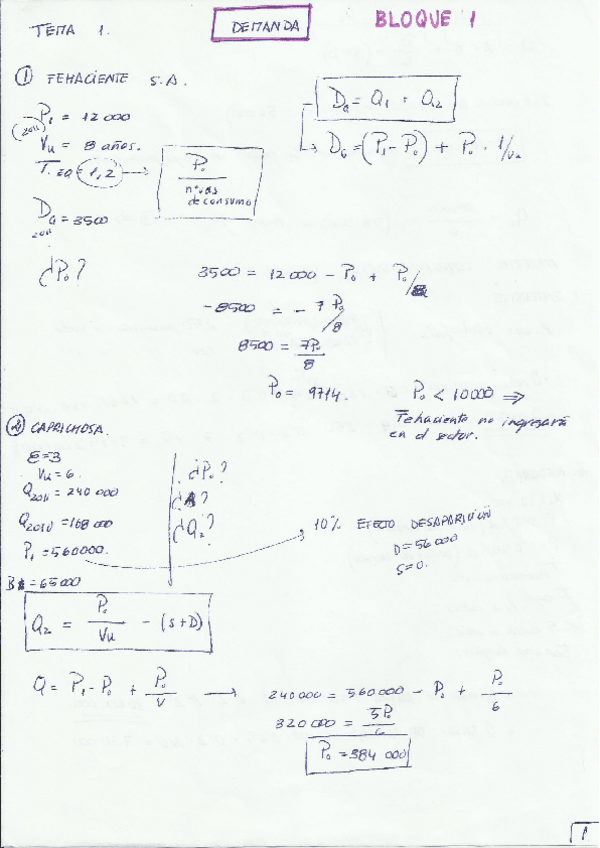 TEMA 1.
DEMANDA
BLOQUE 1
① FEHACIENTE S.A.
P₁ = 12 000
(2011)
Vu = 8 años.
= 1,2 →
P₀ / nº uds de consumo
D_G = Q₁ + Q₂
→ D_G = (P₁ - P₀) + P₀ · 1/Vu
D_G = 3500
2011
¿P₀?
3500 = 12 000 - P₀ + P₀/8
-8500 = - 7 P₀/8
8500 = 7P₀/8
P₀ = 9714.
P₀ < 10000 ⇒
Fehaciente no ingresará
en el sector.
② CAPRICHOSA.
ε=3
Vu = 6.
Q2011 = 240 000
Q2010 = 168 000
P₁ = 560000.
= 65000
¿P₀?
¿Q₂?
10% EFECTO DESAPARICIÓN
D = 56000
S = 0.
Q₂ = P₀/Vu - (S+D)
Q = P₁ - P₀ + P₀/V → 240000 = 560000 - P₀ + P₀/6
320000 = 5P₀/6
P₀ = 384 000
1